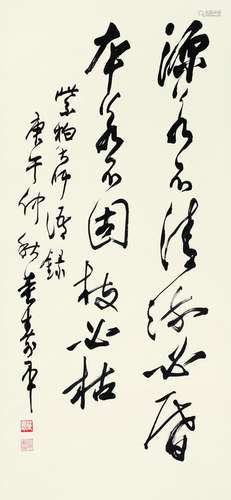 源若不清流必昏
本若不固枝必枯
紫柏大师语录
庚午仲秋董寿平